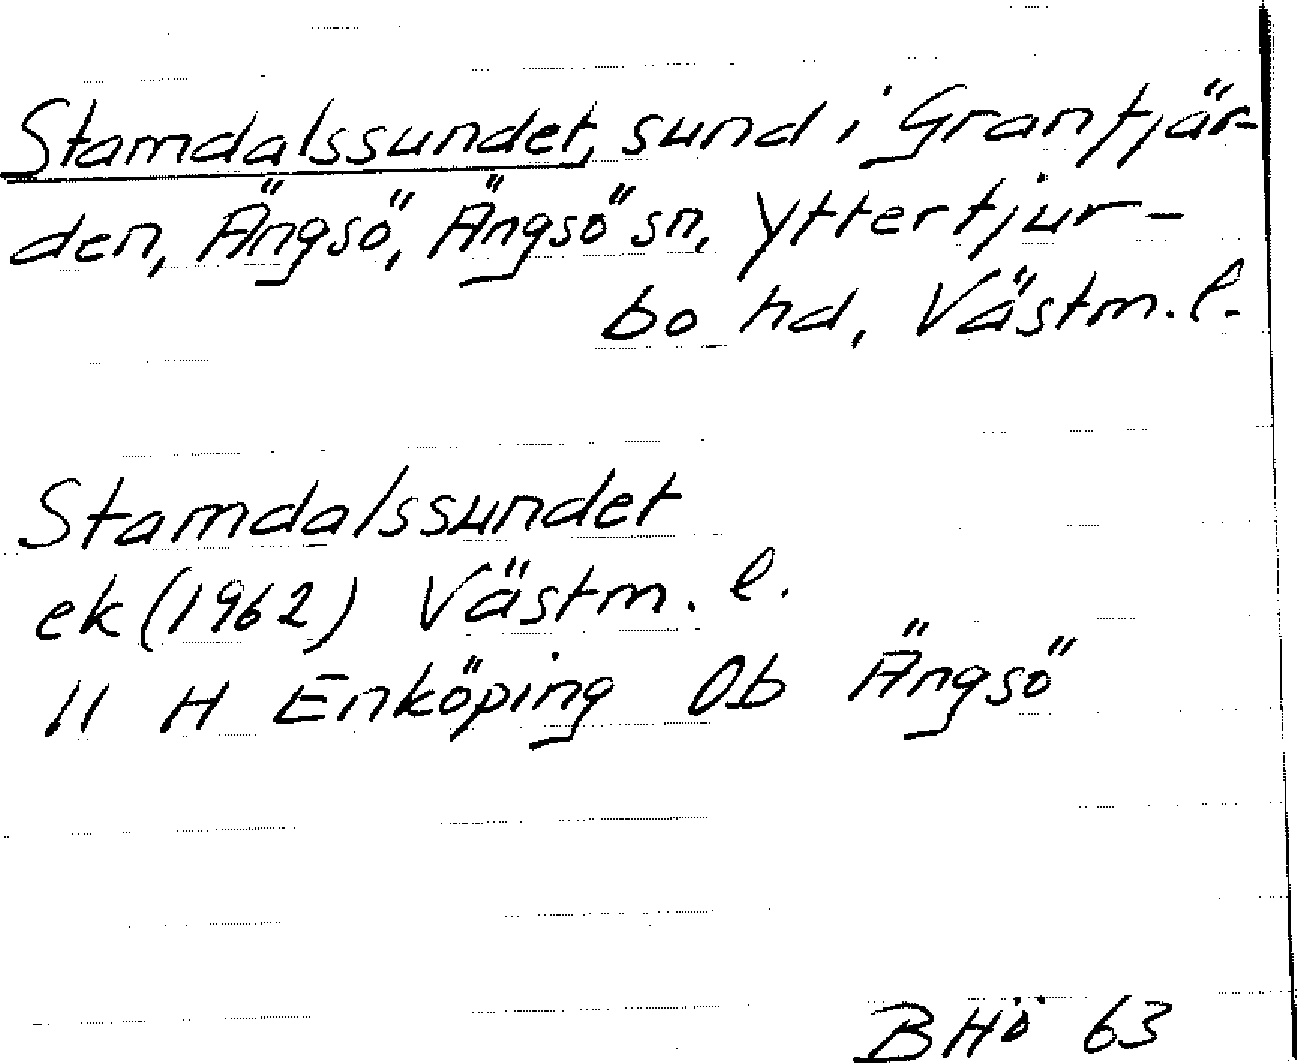 Stamdalssundet, sund i Granfjär-
den, Ängsö, Ängsö sn, Yttertjur-
bo hd, Västm. l.
Stamdalssundet
ek (1962) Västm. l.
11 H Enköping 0b Ängsö
BHö 63